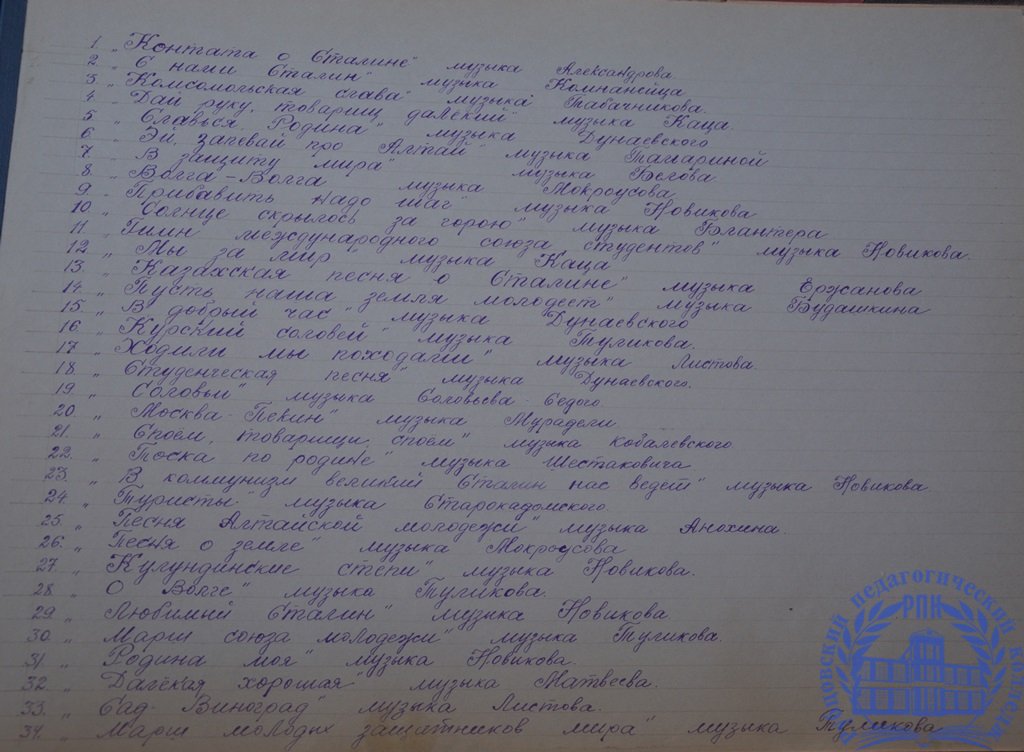 1. „Контата о Сталине" музыка Александрова
2. „С нами Сталин" музыка Компанейца
3. „Комсомольская слава" музыка Табачникова.
4. „Дай руку, товарищ далёкий" музыка Каца.
5. „Славься, Родина" музыка Дунаевского
6. „Эй, запевай про Алтай" музыка
7. „В защиту мира" музыка Белова
8. „Волга-Волга музыка Мокроусова
9. „Прибавить надо шаг" музыка Новикова
10. „Солнце скрылось за горою" музыка Блантера
11. „Гимн международного союза студентов" музыка Новикова.
12. „Мы за мир музыка Каца
13. „Казахская песня о Сталине" музыка Ержанова
14. „Пусть наша земля молодеет" музыка Будашкина
15. „В добрый час" музыка Дунаевского
16. „Курский соловей" музыка Туликова.
17. „Ходили мы походами" музыка Листова.
18. „Студенческая песня" музыка Дунаевского.
19. „Соловьи" музыка Соловьева-Седого.
20. „Москва-Пекин" музыка Мурадели
21. „Споём, товарищи, споём" музыка Кобалевского
22. „Тоска по родине" музыка Шестаковича
23. „В коммунизм великий Сталин нас ведёт" музыка Новикова.
24. „Туристы" музыка Старокадомского.
25. „Песня Алтайской молодежи" музыка Анохина.
26. „Песня о земле" музыка Мокроусова
27. „Кулундинские степи" музыка Новикова.
28. „О Волге" музыка Туликова.
29. „Любимый Сталин" музыка Новикова
30. „Марш союза молодежи" музыка Туликова
31. „Родина моя" музыка Новикова.
32. „Далёкая хорошая" музыка Матвеева.
33. „Сад-Виноград" музыка Листова.
34. „Марш молодых защитников мира" музыка Туликова
педагогический колледж
РПК